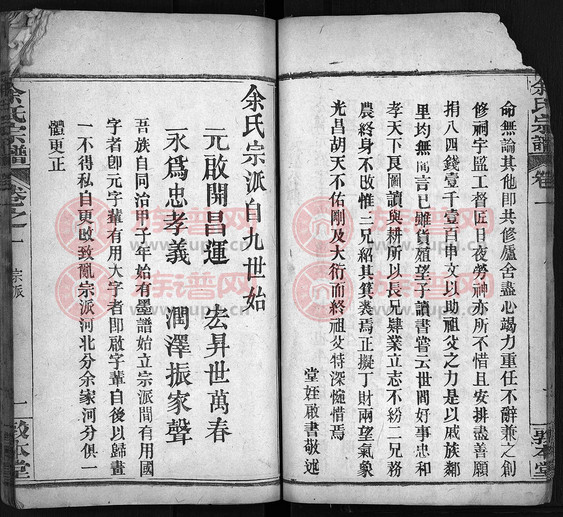 余氏宗譜 卷一
命無論其他即共修廬舍盡心竭力重任不辭兼之創
修祠宇監工督匠日夜勞神亦所不惜且安排盡善願
捐八四錢壹千壹百申文以助祖爻之力是以戚族鄰
里均無間言已雖貨殖望子讀書嘗云世間好事忠和
孝天下良圖讀與耕所以長兄肄業立志不紛二兄務
農終身不改惟三兄紹其箕裘焉正擬丁財兩望氣象
光昌胡天不佑剛及大衍而終祖爻特深惋惜焉
堂姪啟書敬述
敦本堂
余氏宗派自九世始
元啟開昌運 宏昇世萬春
永爲忠孝義 潤澤振家聲
吾族自同治甲子年始有墨譜始立宗派間有用國
字者即元字輩有用大字者即啟字輩自後以歸畫
一不得私自更改致亂宗派河北分余家河分俱一
體更正
余氏宗譜 卷之一 宗派 一 敦本堂
族谱网
www.zupu.cn
族谱网
www.zupu.cn